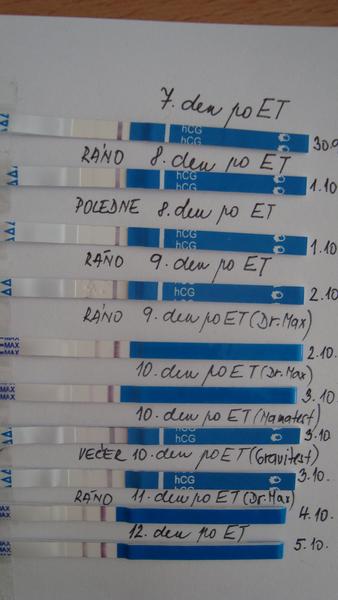 7. den po ET
hCG
hCG
30.9
RÁNO 8. den po ET
hCG
hCG
1.10
POLEDNE 8. den po ET
hCG
hCG
1.10
RÁNO 9. den po ET
hCG
2.10
RÁNO 9. den po ET (Dr.Max)
MAX
=MAX
2.10.
10. den po ET (Dr.Max)
MAX
=MAX
3.10
10. den po ET (Mamatest)
hCG
hCG
3.10
VEČER 10. den po ET (Gravitest)
hCG
hCG
3.10.
RÁNO 11. den po ET (Dr.Max)
MAX
MAX
4.10.
12. den po ET
MAX
MAX
5.10.